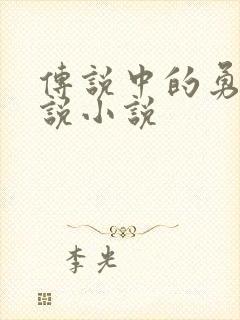 傳說中的勇
說小說
李光